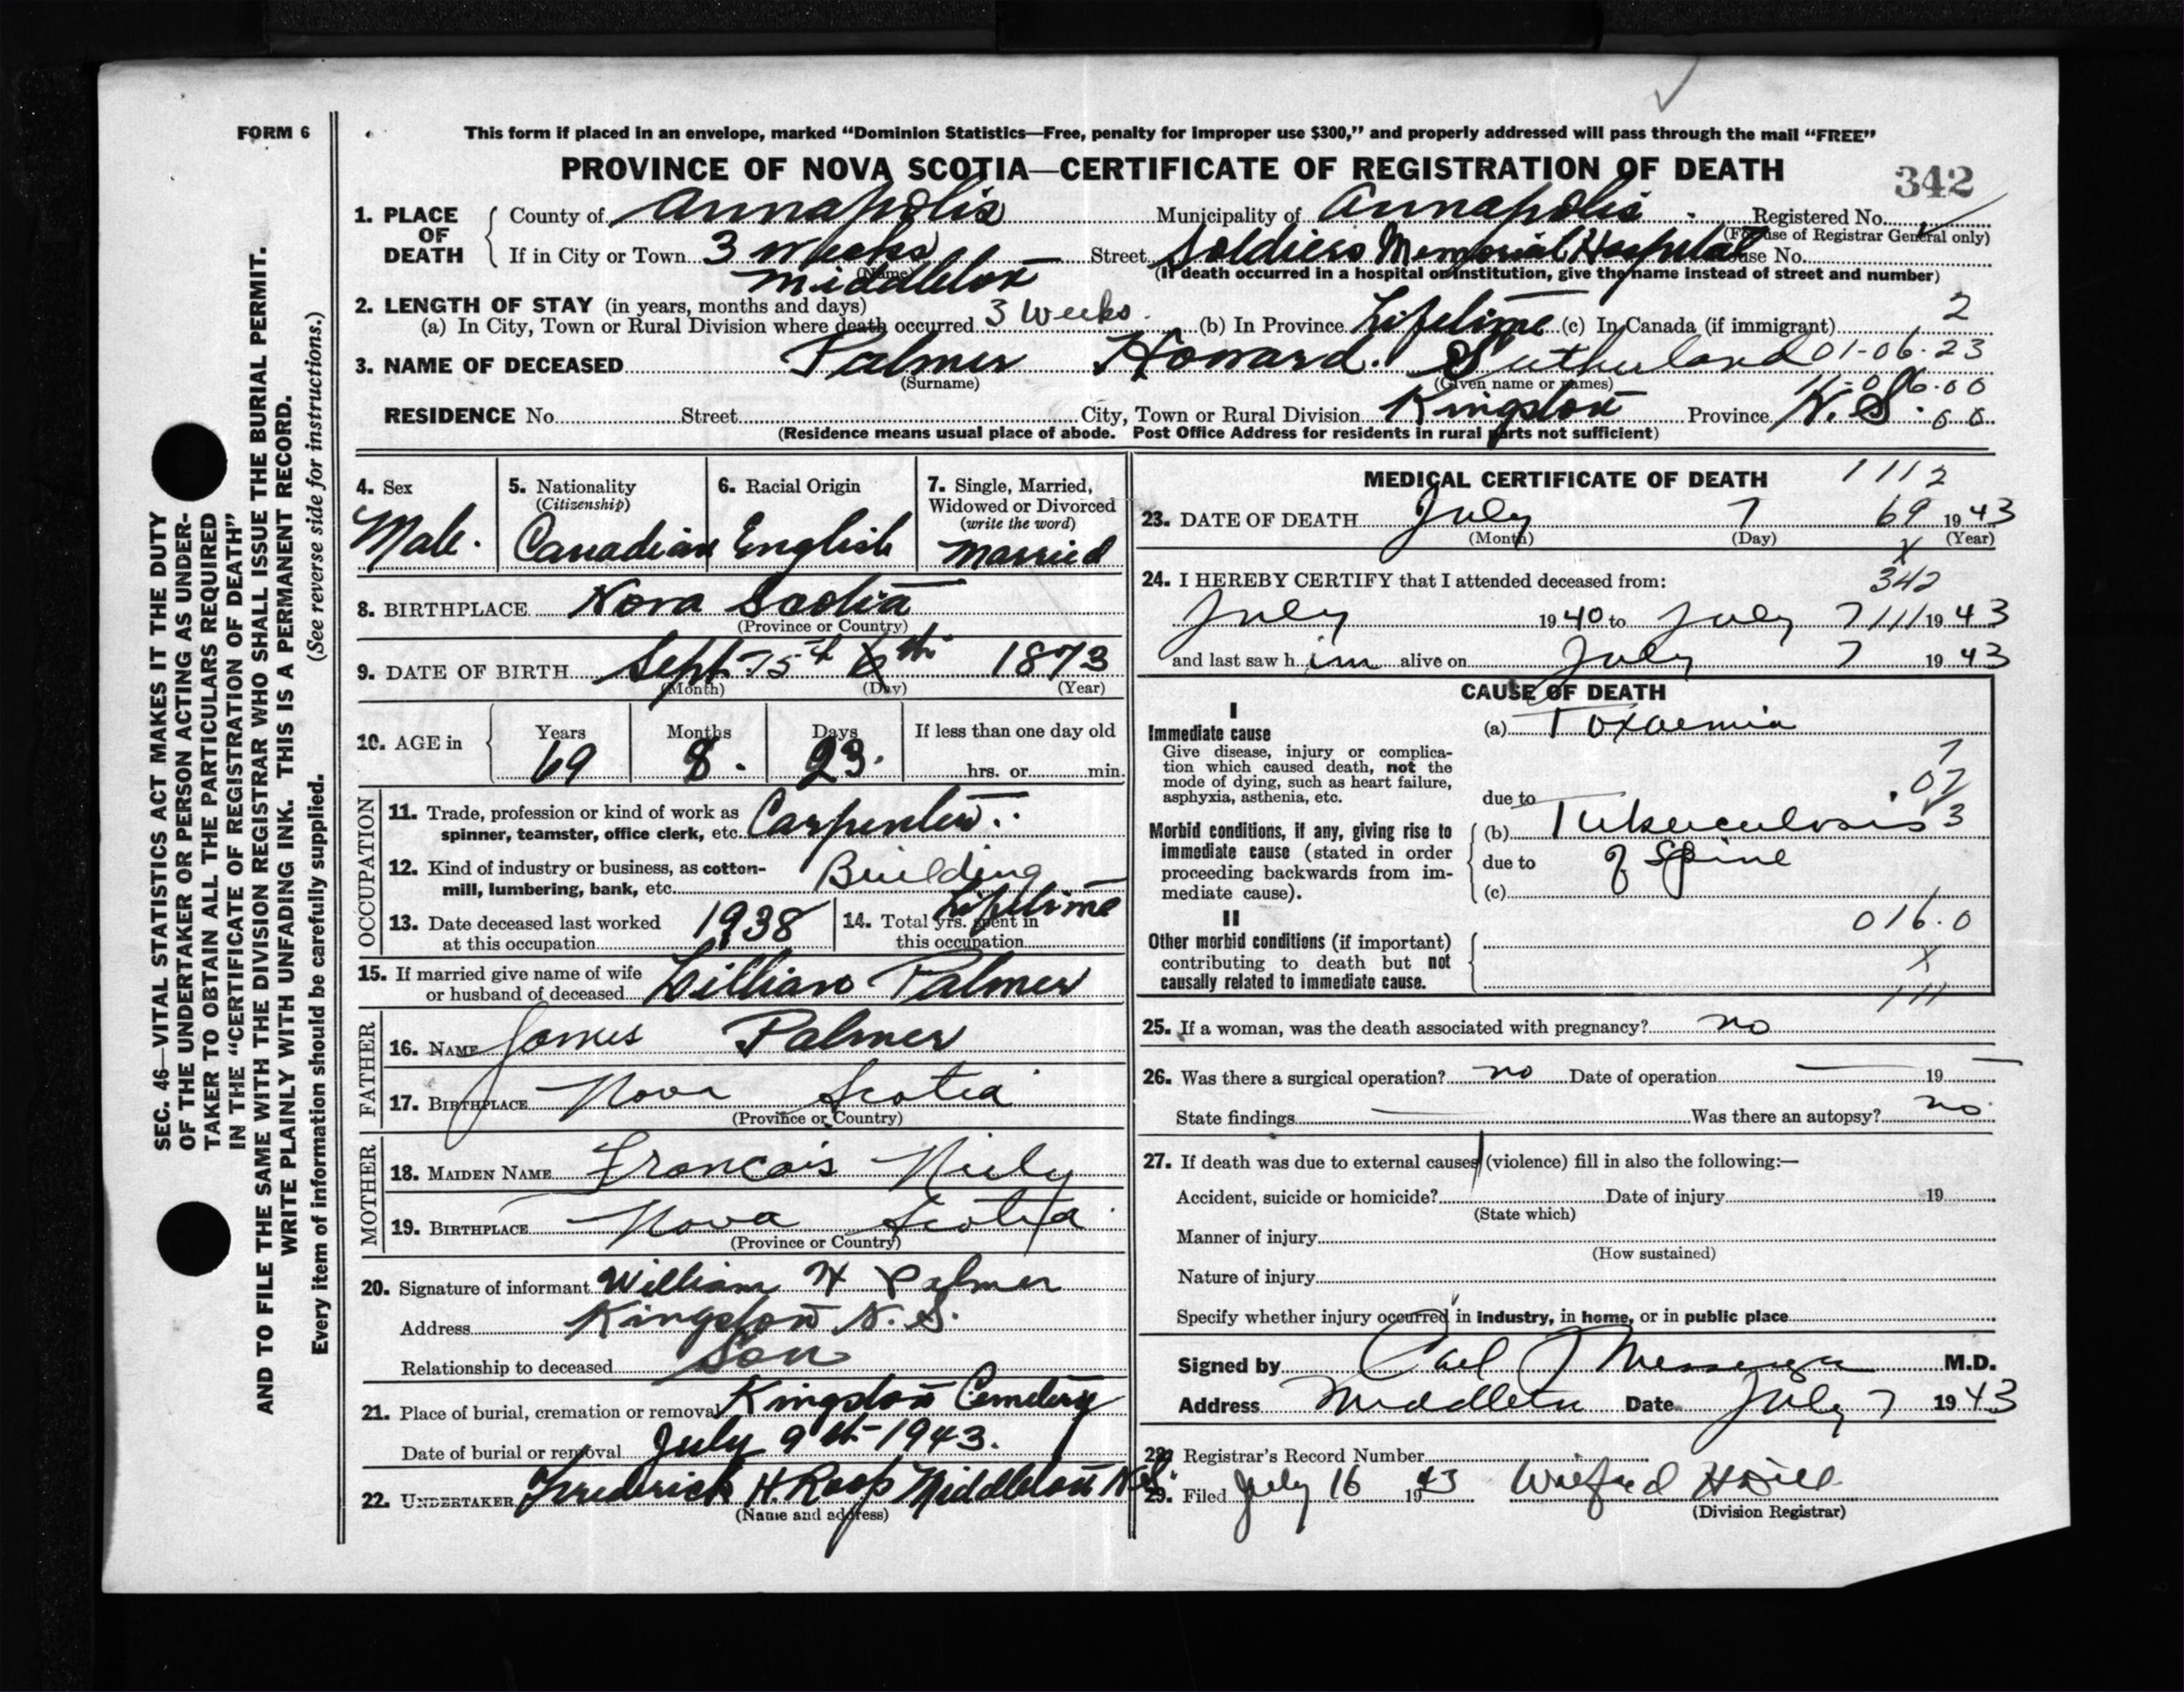 FORM 6
This form if placed in an envelope, marked “Dominion Statistics—Free, penalty for improper use $300,” and properly addressed will pass through the mail “FREE”
PROVINCE OF NOVA SCOTIA—CERTIFICATE OF REGISTRATION OF DEATH
342
1. PLACE OF DEATH
County of Annapolis Municipality of Annapolis Registered No.
(For use of Registrar General only)
If in City or Town 3 weeks Street Soldiers Memorial Hospital House No.
(Name) (If death occurred in a hospital or institution, give the name instead of street and number)
Middleton
2. LENGTH OF STAY (in years, months and days) 2
(a) In City, Town or Rural Division where death occurred 3 Weeks (b) In Province Lifetime (c) In Canada (if immigrant)
3. NAME OF DECEASED Palmer Howard. Sutherland 01-06-23
(Surname) (Given name or names)
RESIDENCE No. Street City, Town or Rural Division Kingston Province N.S.
(Residence means usual place of abode. Post Office Address for residents in rural parts not sufficient)
4. Sex
Male.
5. Nationality
(Citizenship)
Canadian
6. Racial Origin
English
7. Single, Married,
Widowed or Divorced
(write the word)
Married
8. BIRTHPLACE Nova Scotia
(Province or Country)
9. DATE OF BIRTH Sept 15th 1873
(Month) (Day) (Year)
10. AGE in
Years Months Days If less than one day old
69 8. 23. hrs. or min.
OCCUPATION
11. Trade, profession or kind of work as
spinner, teamster, office clerk, etc. Carpenter.
12. Kind of industry or business, as cotton-
mill, lumbering, bank, etc. Building
13. Date deceased last worked
at this occupation 1938
14. Total yrs. spent in
this occupation Lifetime
15. If married give name of wife
or husband of deceased Lillian Palmer
FATHER
16. NAME James Palmer
17. BIRTHPLACE Nova Scotia
(Province or Country)
MOTHER
18. MAIDEN NAME Francais Nily
19. BIRTHPLACE Nova Scotia
(Province or Country)
20. Signature of informant William H Palmer
Address Kingston N.S.
Relationship to deceased Son
21. Place of burial, cremation or removal Kingston Cemetery
Date of burial or removal July 9th 1943.
22. UNDERTAKER Frederick H. Roop Middleton N.S.
(Name and address)
MEDICAL CERTIFICATE OF DEATH 1112
23. DATE OF DEATH July 7 69 1943
(Month) (Day) (Year)
24. I HEREBY CERTIFY that I attended deceased from: 342
July 1940 to July 7 1943
and last saw him alive on July 7 1943
CAUSE OF DEATH
I
Immediate cause
Give disease, injury or complica-
tion which caused death, not the
mode of dying, such as heart failure,
asphyxia, asthenia, etc.
(a) Toxaemia
due to
Morbid conditions, if any, giving rise to
immediate cause (stated in order
proceeding backwards from im-
mediate cause).
(b) Tuberculosis
due to of Spine
(c)
II
Other morbid conditions (if important)
contributing to death but not
causally related to immediate cause.
016.0
X
25. If a woman, was the death associated with pregnancy? no
26. Was there a surgical operation? no Date of operation 19
State findings Was there an autopsy? no
27. If death was due to external causes (violence) fill in also the following:—
Accident, suicide or homicide? Date of injury 19
(State which)
Manner of injury
(How sustained)
Nature of injury
Specify whether injury occurred in industry, in home, or in public place
Signed by Carl Messenger M.D.
Address Middleton Date July 7 1943
28. Registrar's Record Number
29. Filed July 16 1943 Wilfred H
(Division Registrar)
SEC. 46—VITAL STATISTICS ACT MAKES IT THE DUTY
OF THE UNDERTAKER OR PERSON ACTING AS UNDER-
TAKER TO OBTAIN ALL THE PARTICULARS REQUIRED
IN THE “CERTIFICATE OF REGISTRATION OF DEATH”
AND TO FILE THE SAME WITH THE DIVISION REGISTRAR WHO SHALL ISSUE THE BURIAL PERMIT.
WRITE PLAINLY WITH UNFADING INK. THIS IS A PERMANENT RECORD.
Every item of information should be carefully supplied. (See reverse side for instructions.)